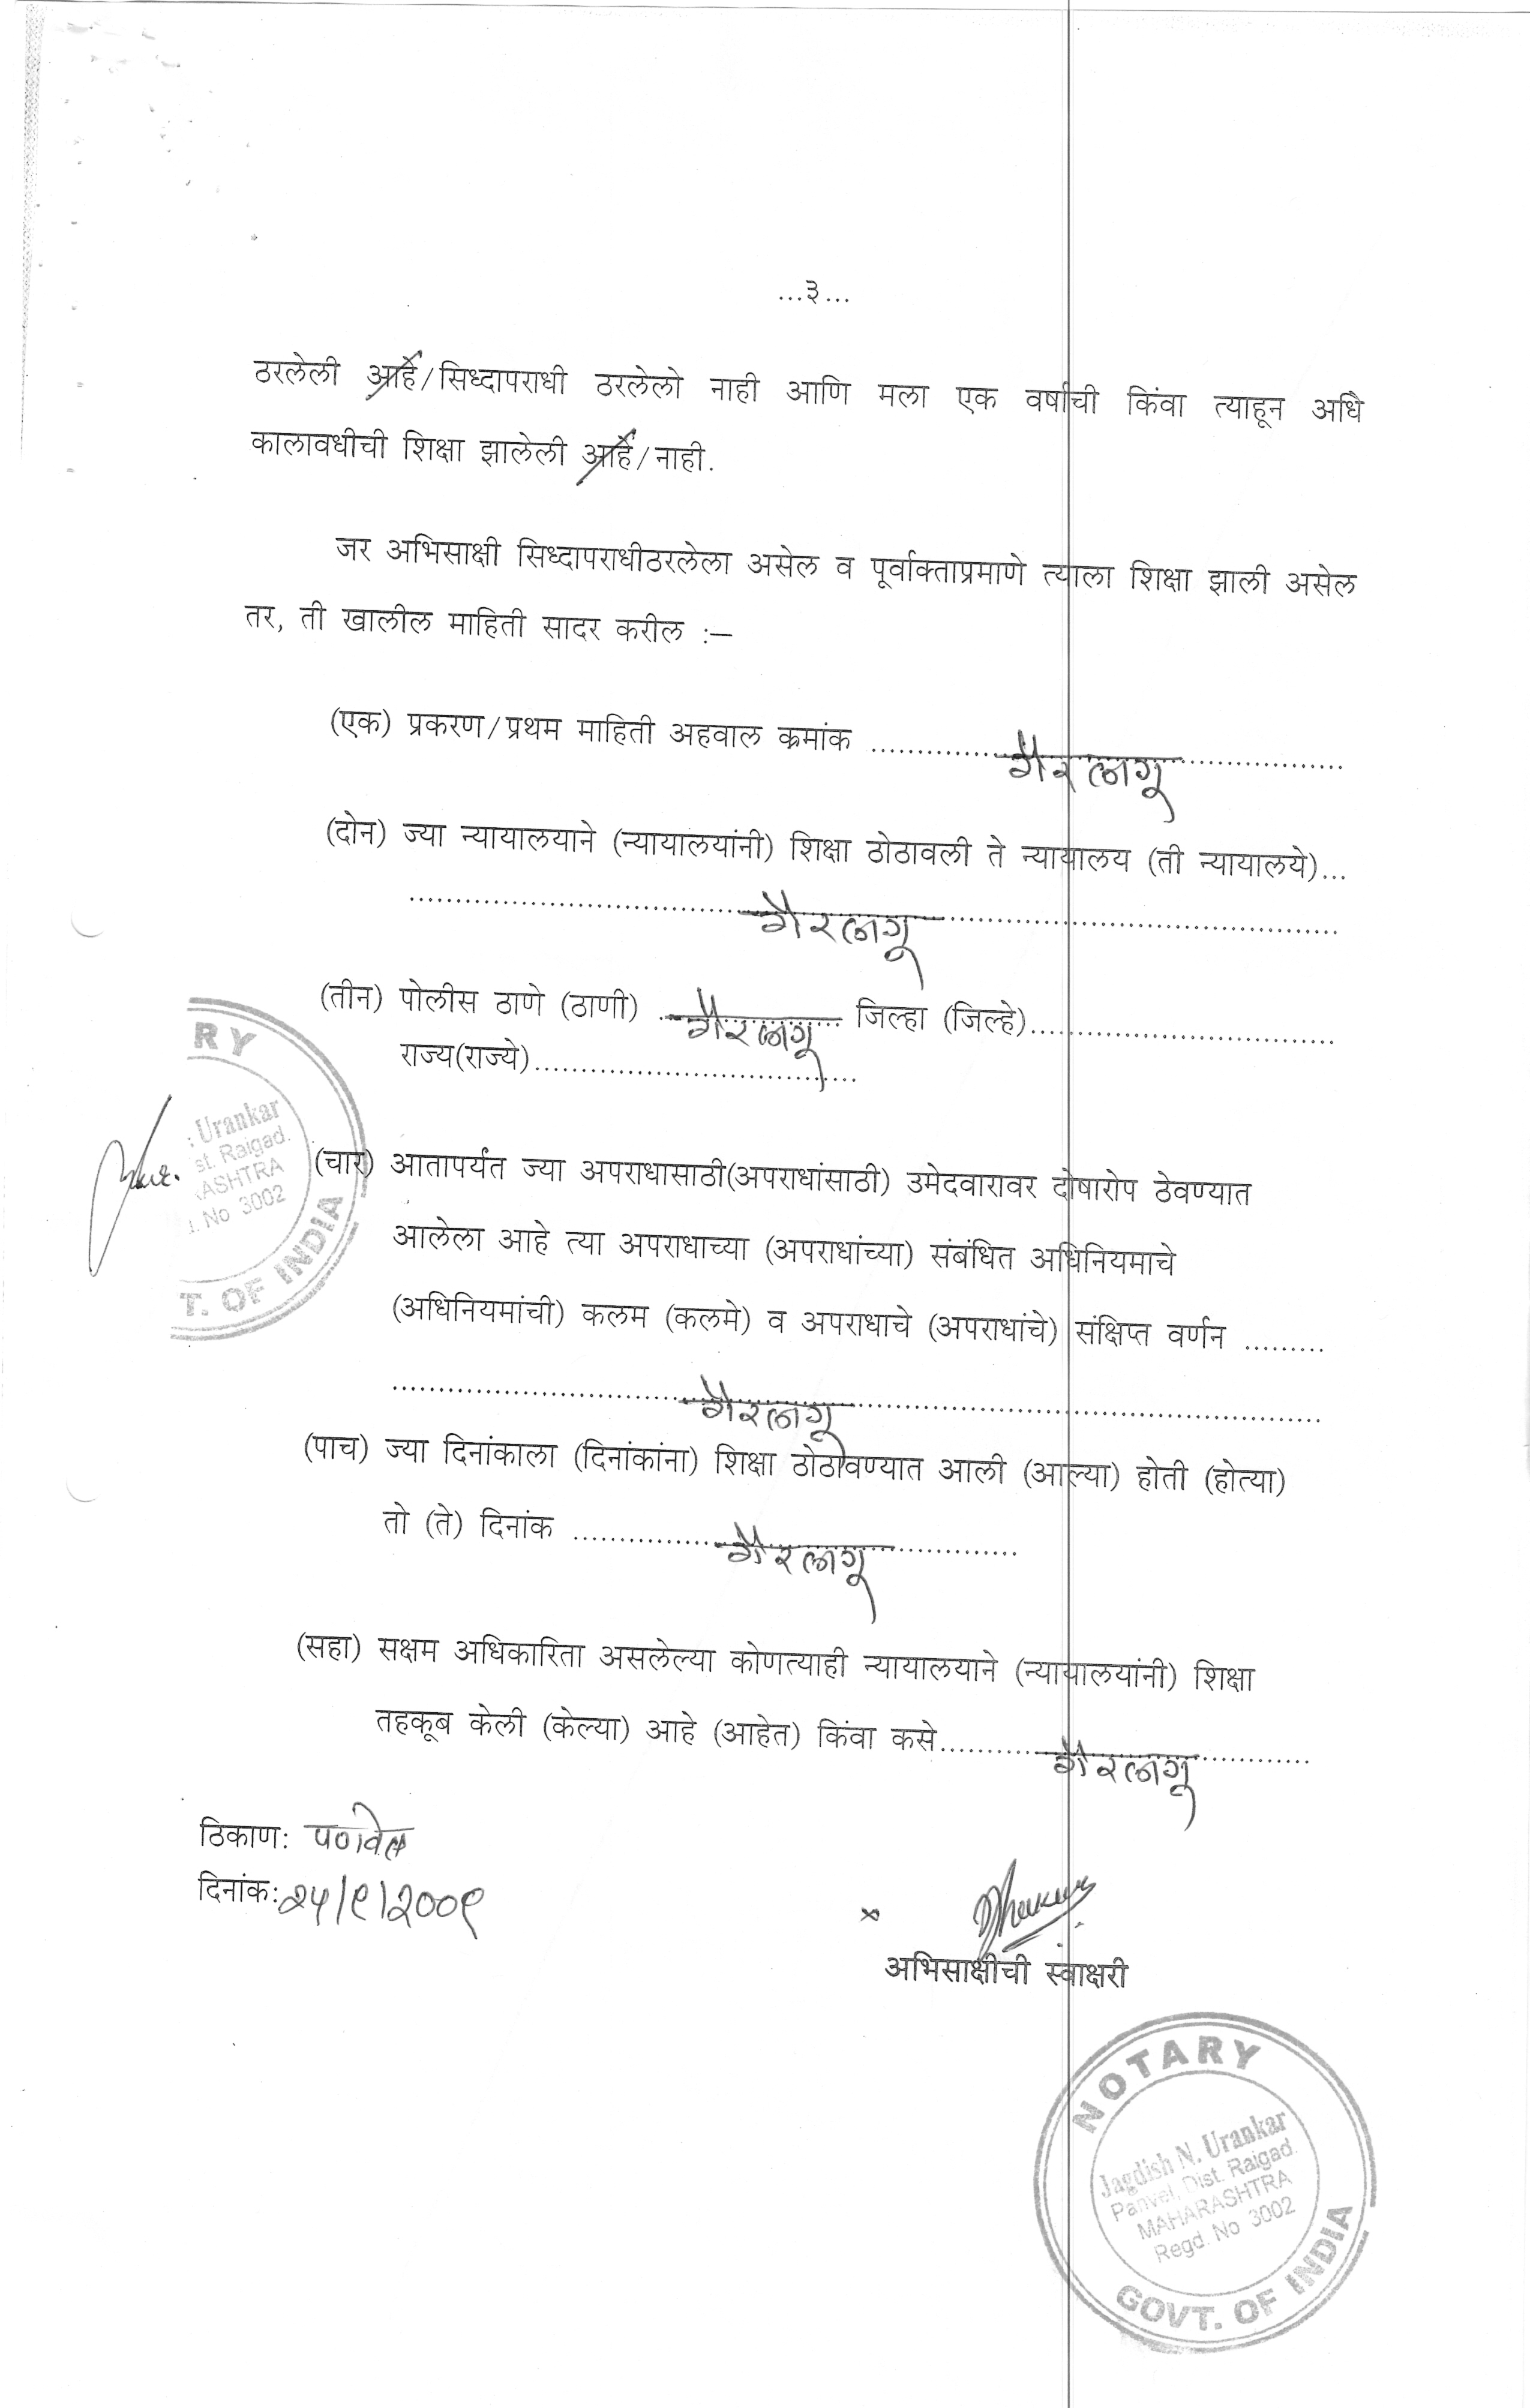 ...३...
ठरलेली आहे/सिध्दापराधी ठरलेलो नाही आणि मला एक वर्षाची किंवा त्याहून अधि
कालावधीची शिक्षा झालेली आहे/नाही.
जर अभिसाक्षी सिध्दापराधीठरलेला असेल व पूर्वाक्ताप्रमाणे त्याला शिक्षा झाली असेल
तर, ती खालील माहिती सादर करील :–
(एक) प्रकरण/प्रथम माहिती अहवाल क्रमांक ........ गैरलागू ........
(दोन) ज्या न्यायालयाने (न्यायालयांनी) शिक्षा ठोठावली ते न्यायालय (ती न्यायालये)...
........ गैरलागू ........
(तीन) पोलीस ठाणे (ठाणी) ... गैरलागू ... जिल्हा (जिल्हे)........
राज्य(राज्ये)........
RY
: Urankar
st. Raigad.
ASHTRA
. No 3002
T. OF INDIA
(चार) आतापर्यंत ज्या अपराधासाठी(अपराधांसाठी) उमेदवारावर दोषारोप ठेवण्यात
आलेला आहे त्या अपराधाच्या (अपराधांच्या) संबंधित अधिनियमाचे
(अधिनियमांची) कलम (कलमे) व अपराधाचे (अपराधांचे) संक्षिप्त वर्णन .........
........ गैरलागू ........
(पाच) ज्या दिनांकाला (दिनांकांना) शिक्षा ठोठावण्यात आली (आल्या) होती (होत्या)
तो (ते) दिनांक ........ गैरलागू ........
(सहा) सक्षम अधिकारिता असलेल्या कोणत्याही न्यायालयाने (न्यायालयांनी) शिक्षा
तहकूब केली (केल्या) आहे (आहेत) किंवा कसे........ गैरलागू ........
ठिकाण: पनवेल
दिनांक: २५/९/२००९
x
अभिसाक्षीची स्वाक्षरी
NOTARY
Jagdish N. Urankar
Panvel, Dist. Raigad.
MAHARASHTRA
Regd. No 3002
GOVT. OF INDIA